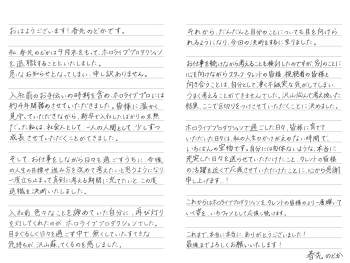 おはようございます！春先のどかです。
私 春先のどかは9月末をもって、ホロライブプロダクション
を退職することといたしました。
急なお知らせとなってしまい、申し訳ありません。
入社前のお手伝いの時期を含め、ホロライブプロには
約4年勤務させていただきました。皆様に温かく
見守っていただきながら、新卒で入社したばかりの未熟
だった私は 社会人として 一人の人間として 少しずつ
成長させていただくことができました。
そして お仕事をしながら日々を過ごすうちに 今後
の人生の目標や進み方を改めて考えたいと思うようになり
一度立ち止まって真剣に考える期間に充てたいと この度
退職を決断いたしました。
入社前 色々なことを諦めていた自分に 再び灯り
を灯してくれたのが ホロライブプロダクションでした。
目まぐるしく日々を過ごす中で 無くしていたすてきな
気持ちが 沢山蘇ってくるのを感じました。
それから だんだんと自分のことについても目を向けら
れるようになり、今回の決断をするに至りました。
お仕事を続けながら考えることも検討したのですが 別のことに
心を向けながらスタッフ タレントの皆様、視聴者の皆様と
向き合うことは、自分として凄く不誠実な気がしてしまい
うまく考えることができませんでした。沢山悩んで考え抜いた
結果、ここで区切りをつけさせていただくことに決めました。
ホロライブプロダクションで過ごした日々、皆様に育てて
いただいた日々は、私の人生のかけがえのない時間で、
いちばんの宝物です。自分には勿体ないような、本当に
充実した日々を送らせていただけたこと タレントの皆様
の活躍を近くで応援させていただけたことに 心から感謝
申し上げます！
これからはホロライブプロダクションを、タレントの皆様のより一層輝いて
いく姿を いちファンとして応援し続けます。
これまで、本当に本当に ありがとうございました！
最後までよろしくお願いいたします！
春先 のどか